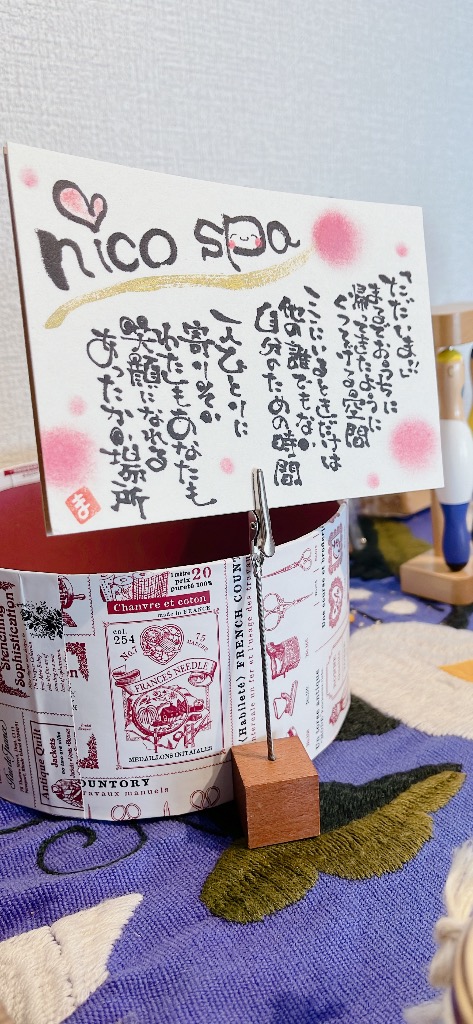 nico spa
"ただいま"と
まるでおうちに
帰ってきたように
くつろげる空間
ここにいるときだけは
他の誰でもない
自分のための時間
一人ひとりに
寄りそい
わたしもあなたも
笑顔になれる
あったかい場所
ま
1 metre 20
prix
pureté 100%
Chanvre et coton
made in FRANCE
col. 254
No.7
75
FRANCES NEEDLE
MEDAILLONS INITIALLE
(Habileté) FRENCH COUNT
Stencilled Sophistication
Antique Quilt
Jackets
OUNTORY
ravaux manuels